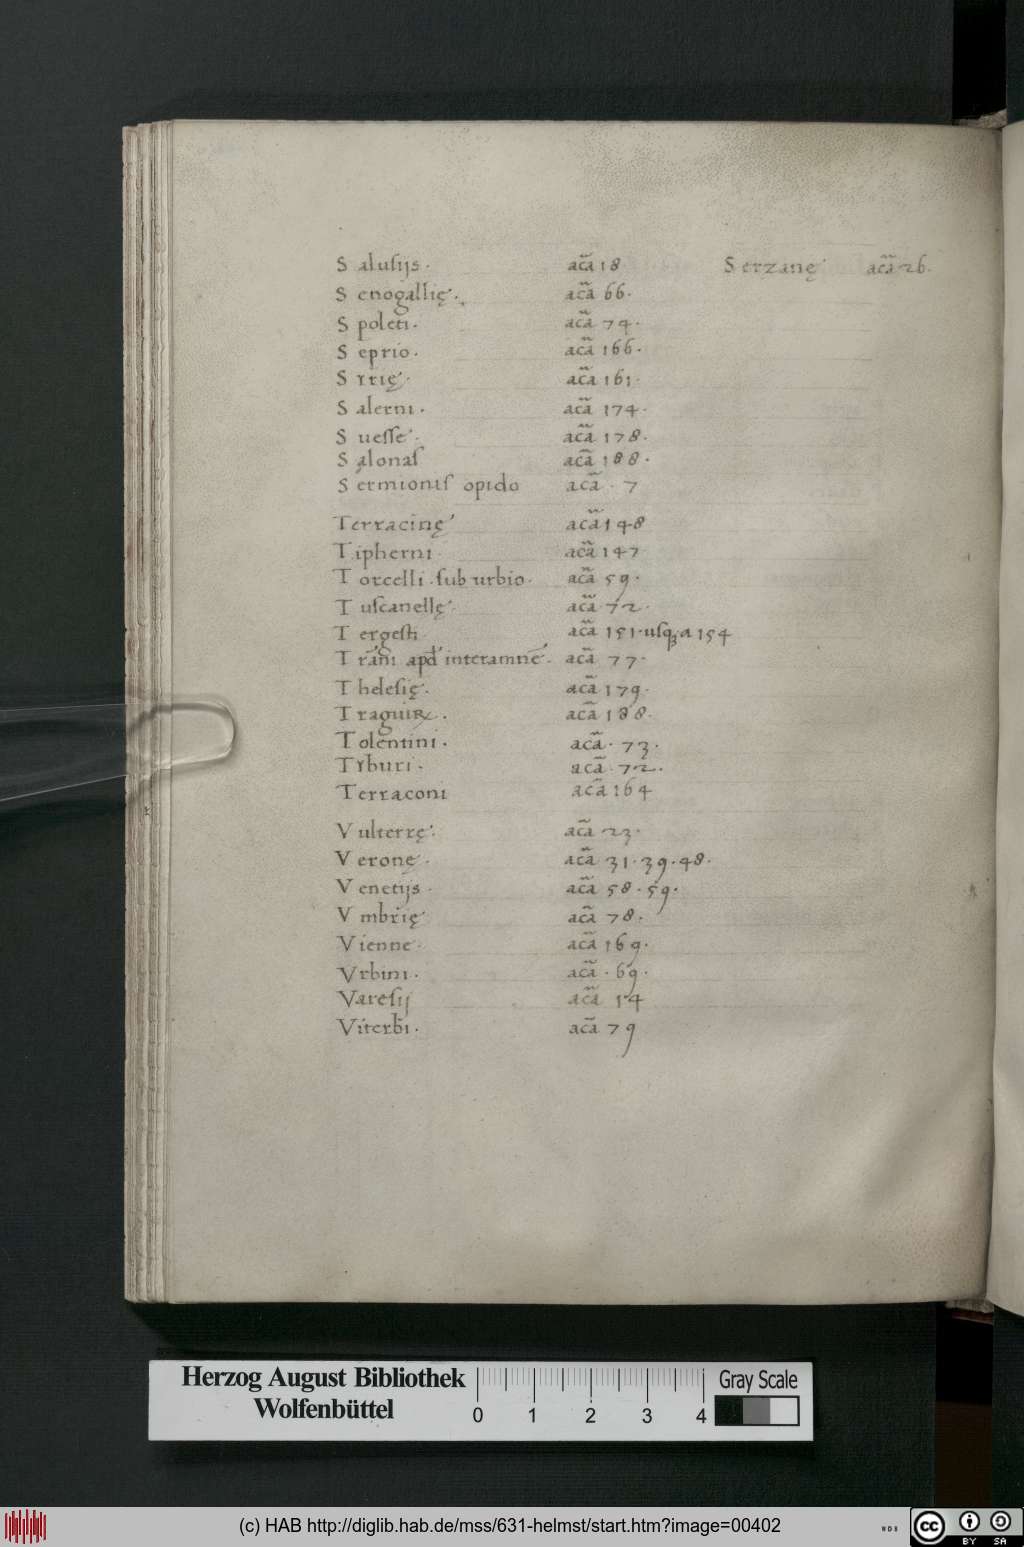 Salusijs· acã 18 Serzanę acã 26·
Senogallię· acã 66·
Spoleti· acã 74·
Seprio· acã 166·
Syrię· acã 161·
Salerni· acã 174·
Suesse· acã 178·
Salonas acã 188·
Sermionis opido acã · 7
Terracinę acã 148
Tipherni· acã 147
Torcelli·sub urbio· acã 59·
Tuscanellę· acã 72·
Tergesti acã 151·usqꝫ a 154
Trãni apd̃ interamnẽ· acã 77·
Thelesię· acã 179·
Traguiꝝ· acã 188·
Tolentini· acã· 73·
Tyburi· acã·72·
Terraconi acã 164
Vulterrę· acã 23·
Veronę· acã 31·39·48·
Venetijs· acã 58·59·
Vmbrię acã 78·
Vienne· acã 169·
Vrbini· acã·69·
Varesij acã 14
Viterbi· acã 79
Herzog August Bibliothek
Wolfenbüttel
0 1 2 3 4
Gray Scale
(c) HAB http://diglib.hab.de/mss/631-helmst/start.htm?image=00402
WDB
cc BY SA